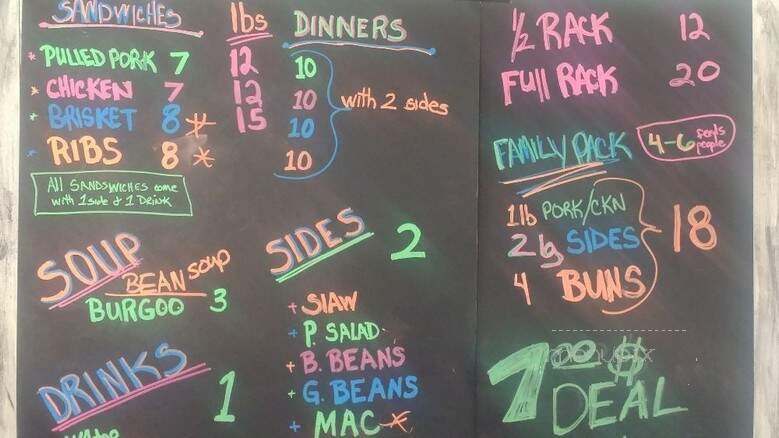 SANDWICHES lbs DINNERS
* PULLED PORK 7 12 10
* CHICKEN 7 12 10
* BRISKET 8 * 15 10
* RIBS 8 * 10
with 2 sides
All SANDSWICHES come
with 1 side & 1 DRINK
SOUP
BEAN soup
BURGOO 3
DRINKS 1
SIDES 2
+ SlAW
+ P. SALAD
+ B. BEANS
+ G. BEANS
+ MAC *
1/2 RACK 12
FUll RACK 20
FAMILY PACK 4-6 feeds people
1lb PORK/CKN
2 lg SIDES
4 BUNS
18
7.00 $
DEAL